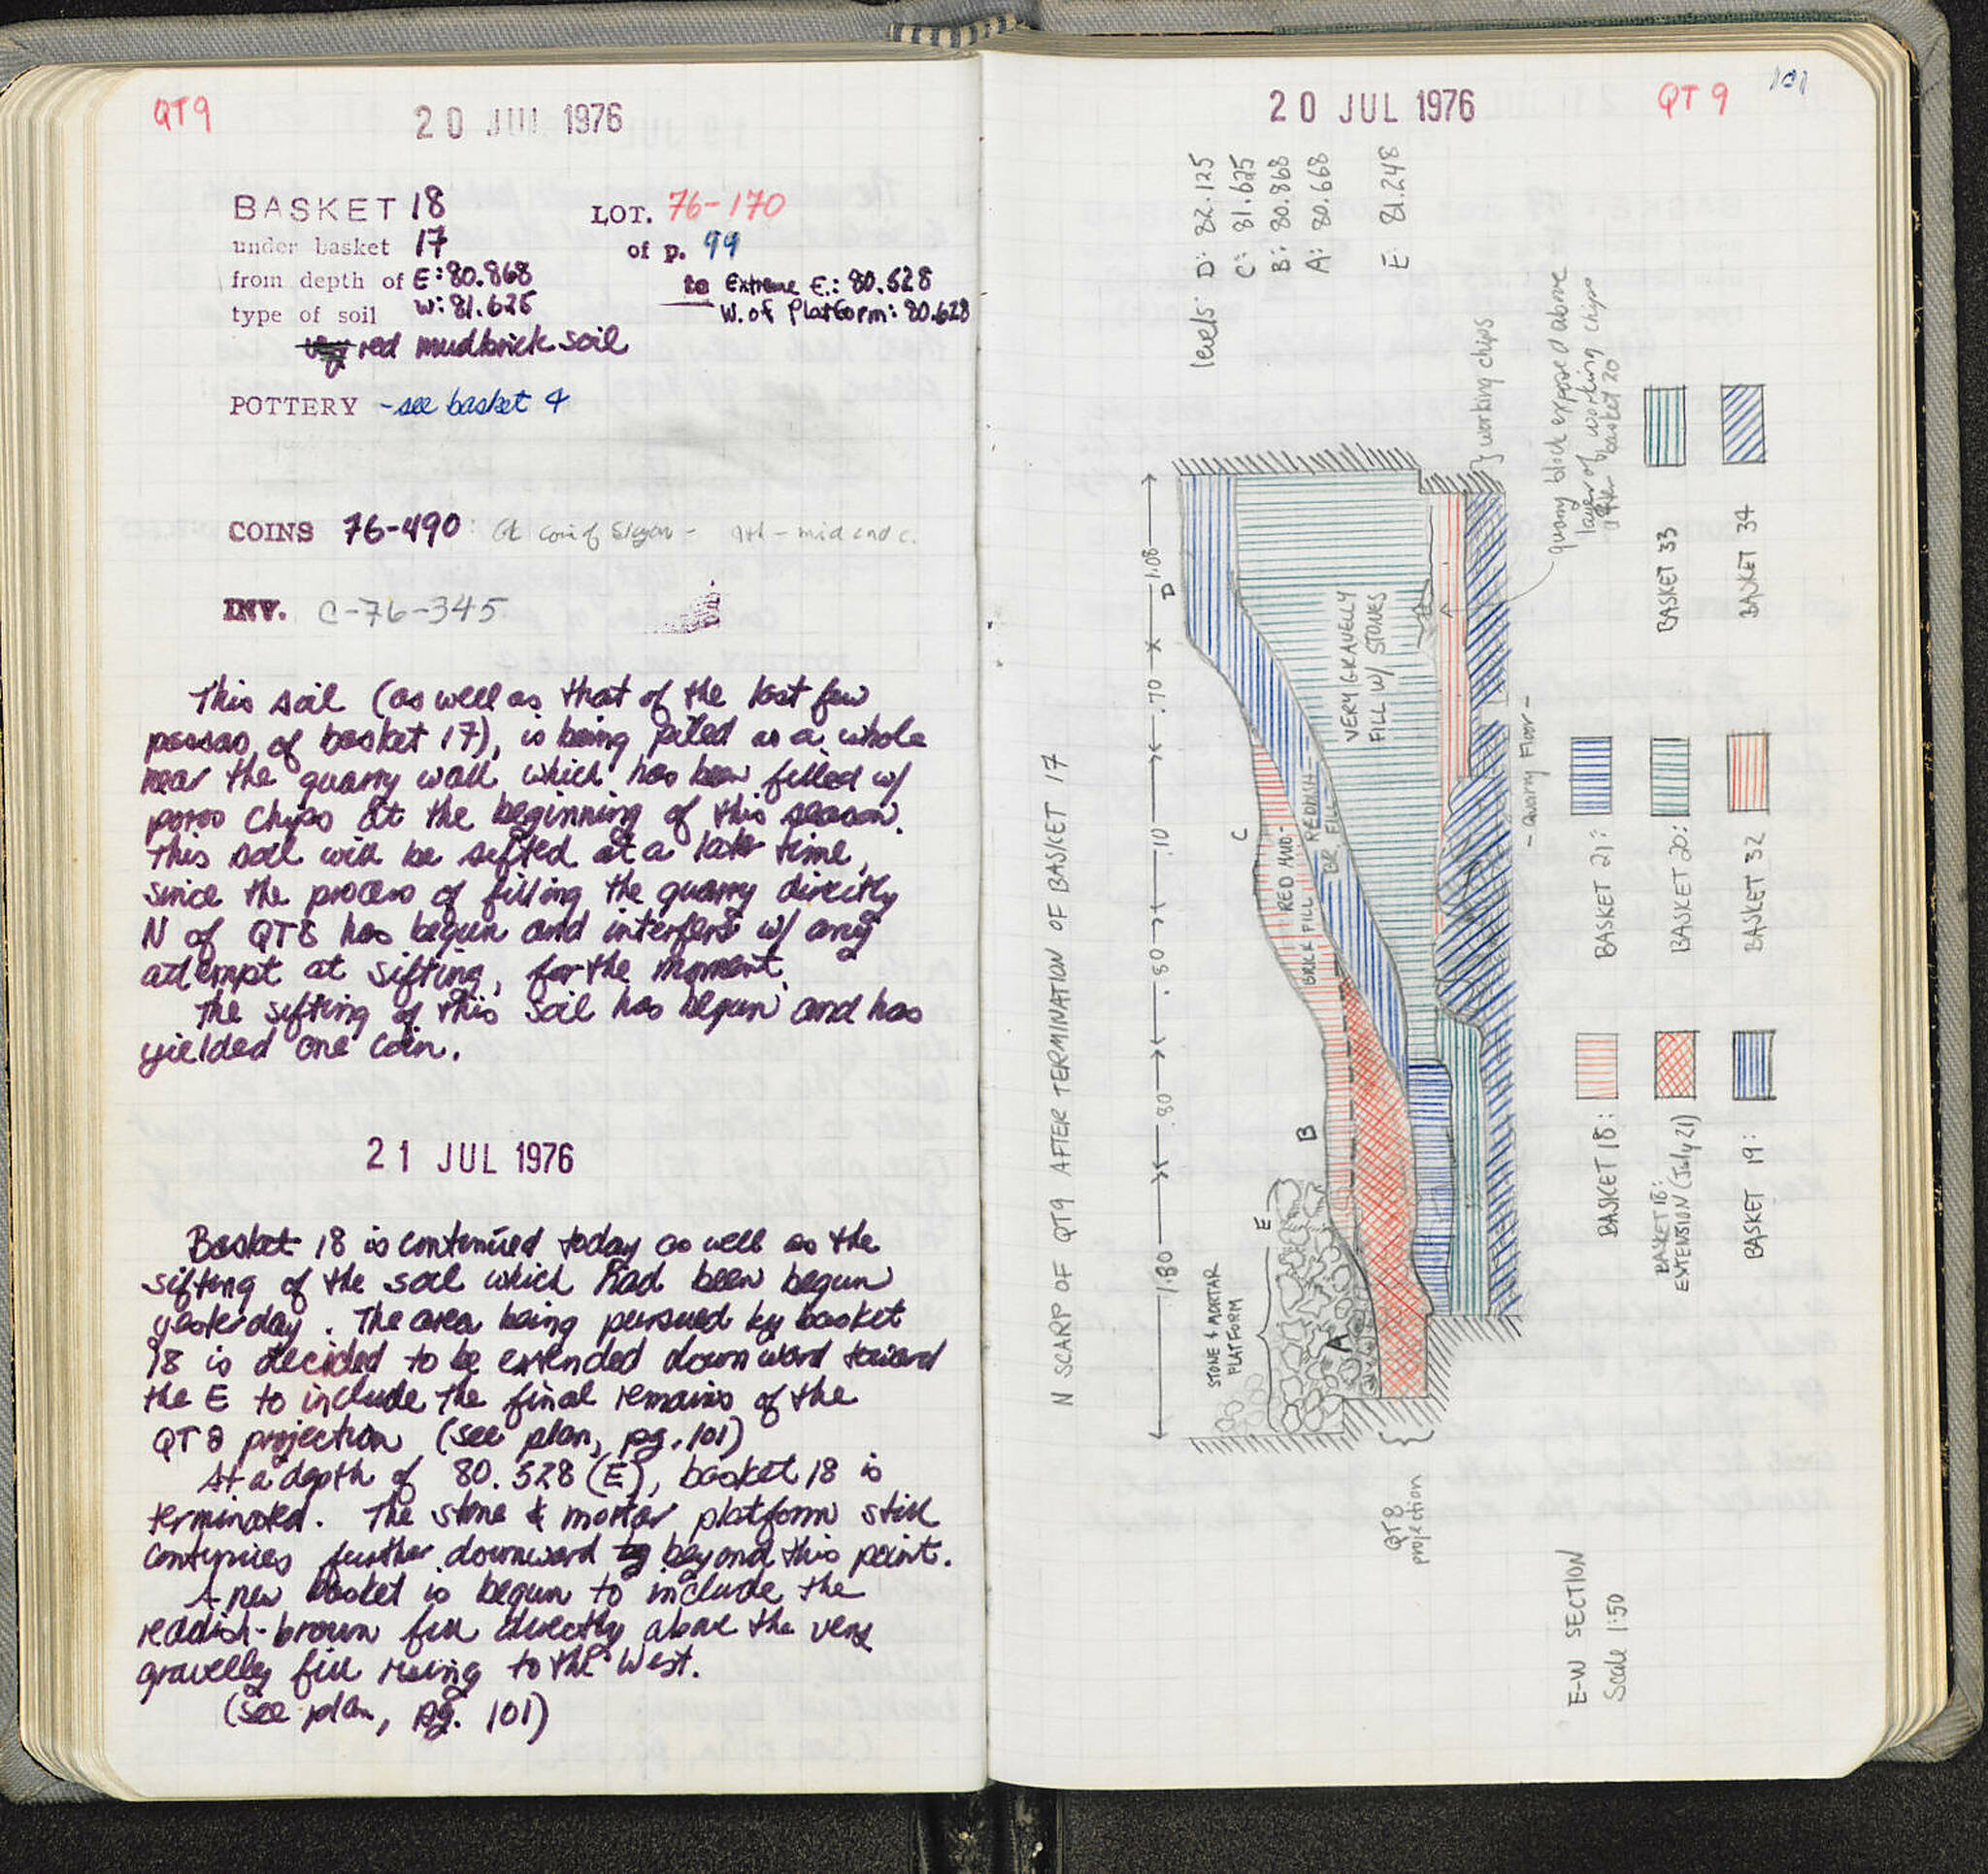 QT9
20 JUL 1976
BASKET 18 LOT. 76-170
under basket 17 of p. 99
from depth of E: 80.868 to Extreme E.: 80.528
W: 81.625 W. of Platform: 80.628
type of soil
red mudbrick soil
POTTERY - see basket 4
COINS 76-490: coin of - 4th - mid 2nd c.
INV. C-76-345
This soil (as well as that of the last few
passes, of basket 17), is being piled as a whole
near the quarry wall which has been filled w/
poros chips at the beginning of this season.
This soil will be sifted at a later time,
since the process of filling the quarry directly
N of QT8 has begun and interfers w/ any
attempt at sifting, for the moment.
The sifting of this soil has begun and has
yielded one coin.
21 JUL 1976
Basket 18 is continued today as well as the
sifting of the soil which had been begun
yesterday. The area being pursued by basket
18 is decided to be extended downward toward
the E to include the final remains of the
QT8 projection (see plan, pg. 101)
At a depth of 80.528 (E), basket 18 is
terminated. The stone & mortar platform still
continues further downward beyond this point.
A new basket is begun to include the
reddish-brown fill directly above the very
gravelly fill rising to the West.
(see plan, pg. 101)
20 JUL 1976
QT 9
101
N SCARP OF QT9 AFTER TERMINATION OF BASKET 17
levels: D: 82.125
C: 81.625
B: 80.868
A: 80.668
E: 81.248
1.80
.80
.80
.10
.70
1.08
D
C
B
E
A
STONE & MORTAR
PLATFORM
RED MUD-
BRICK FILL
REDDISH-
BR. FILL
VERY GRAVELLY
FILL W/ STONES
} working chips
quarry block exposed above
layer of working chips
after basket 20
- Quarry Floor -
QT 8
projection
BASKET 18:
BASKET 18:
EXTENSION (July 21)
BASKET 19:
BASKET 21:
BASKET 20:
BASKET 32
BASKET 33
BASKET 34
E-W SECTION
Scale 1:50